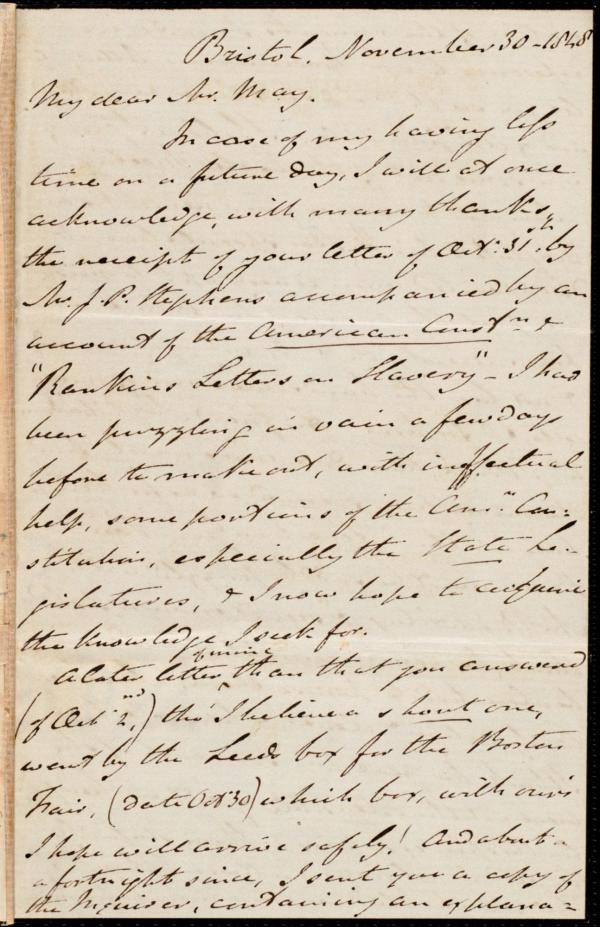 Bristol, November 30 - 1848
My dear Mr. May.
In case of my having less
time on a future day, I will at once
acknowledge, with many thanks,
the receipt of your letter of Oct. 31st. by
Mr. J. P. Stephens accompanied by an
account of the American Constn. &
"Rankin's Letters on Slavery" - I had
been puzzling in vain a few days
before to make out, with ineffectual
help, some portions of the Amn. Con-
stitution, especially the State Le-
gislatures, & I now hope to acquire
the knowledge I seek for.
A later letter of mine than that you answered
(of Oct 2nd,) tho' I believe a short one,
went by the Leeds box for the Boston
Fair, (date Oct 30) which box, with ours
I hope will arrive safely! And about
a fortnight since, I sent you a copy of
the Inquirer, containing an explana=